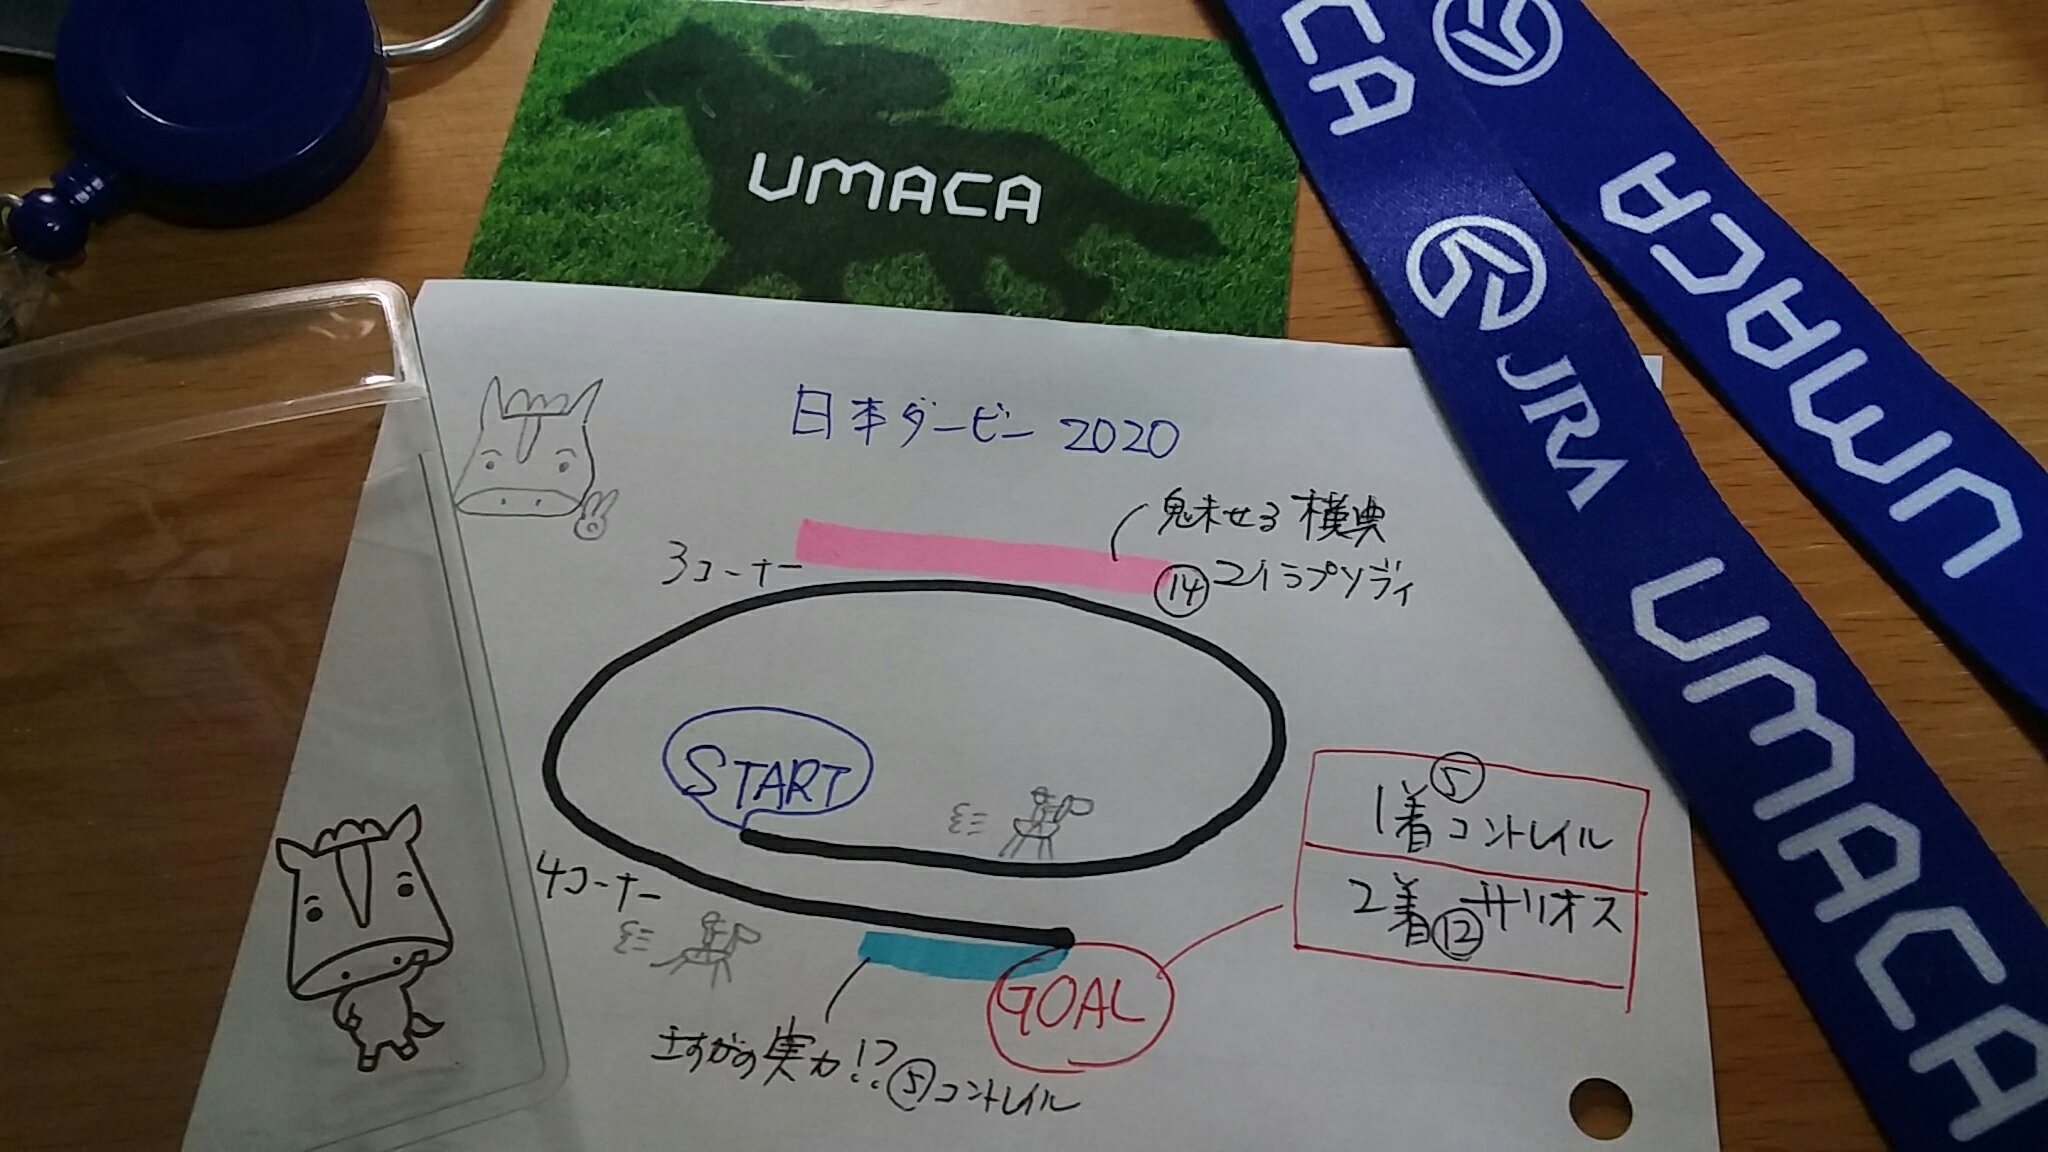 UMACA
CA
UMACA
JRA UMACA
日本ダービー 2020
魅せる横典
3コーナー
⑭ マイラプソディ
START
4コーナー
GOAL
1着 ⑤ コントレイル
2着 ⑫ サリオス
さすがの実力!? ⑤ コントレイル